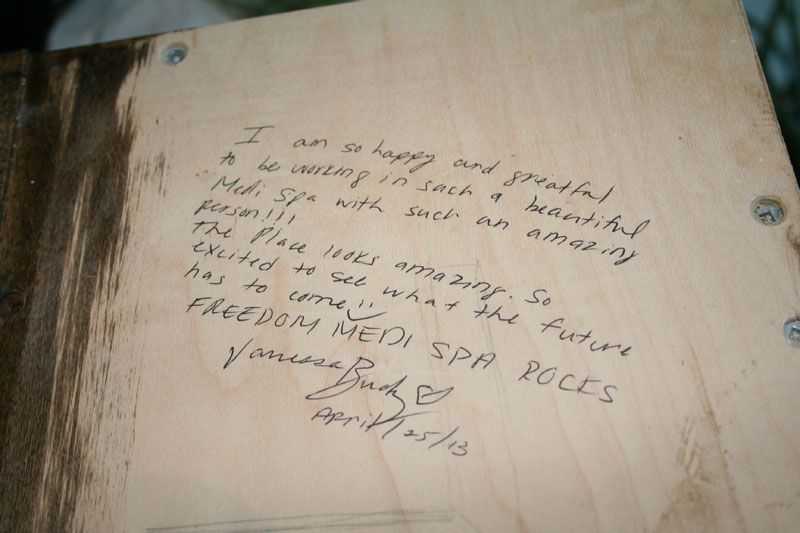 I am so happy and greatful
to be working in such a beautiful
Medi Spa with such an amazing
person!!!
The Place looks amazing. So
excited to see what the future
has to come!!
FREEDOM MEDI SPA ROCKS
Vanessa
April/25/13